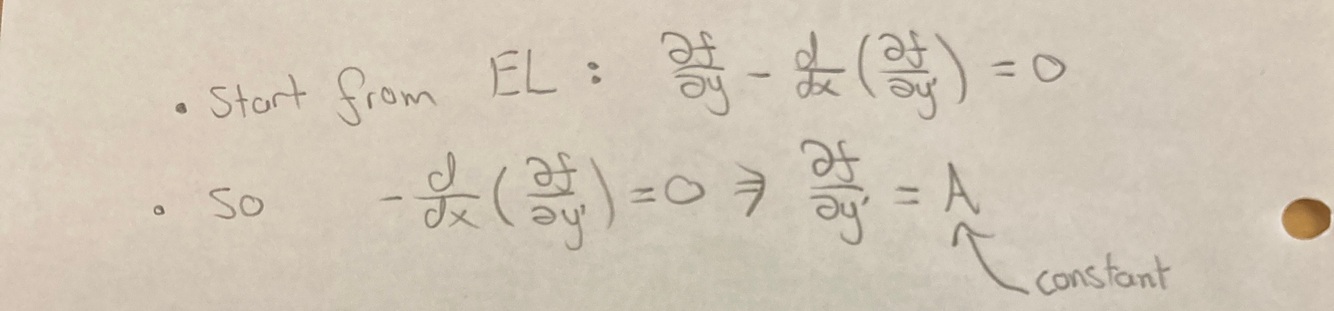 • Start from EL : ∂f/∂y - d/dx (∂f/∂y') = 0
• So - d/dx (∂f/∂y') = 0 ⇒ ∂f/∂y' = A
constant